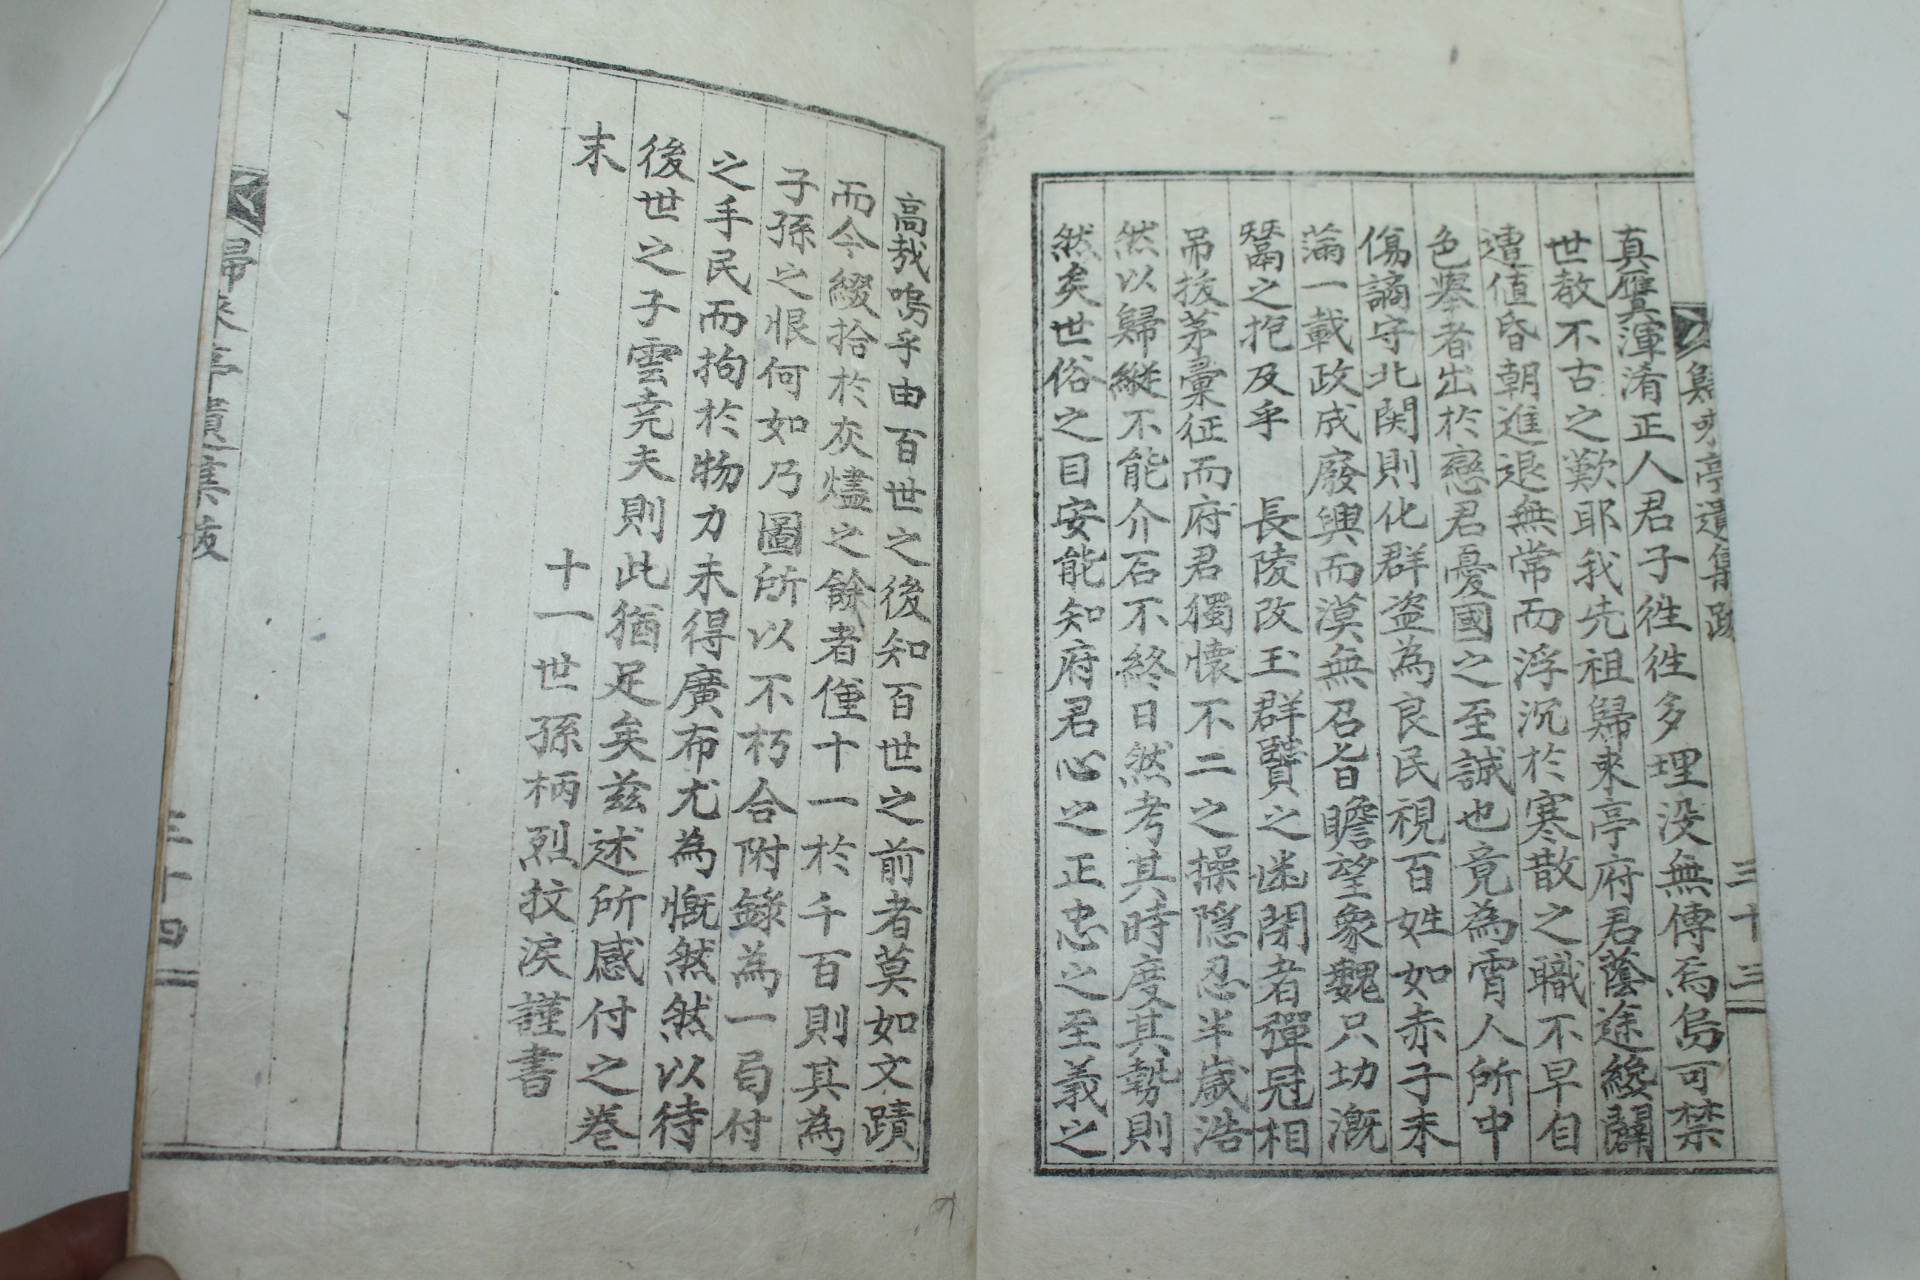 歸來亭遺集跋
三十三
真贗渾淆正人君子徃徃多理沒無傳焉烏可禁
世教不古之歎耶我先祖歸來亭府君蔭途纔闢
遭值昏朝進退無常而浮沉於寒散之職不早自
色擧者出於戀君憂國之至誠也竟為宵人所中
傷謫守北関則化群盗為良民視百姓如赤子未
滿一載政成廢興而漠無召旨瞻望象魏只切漑
鬵之抱及乎 長陵改玉群賢之迷閉者彈冠相
吊拔茅彙征而府君獨懷不二之操隱忍半歲浩
然以歸縱不能介石不終日然考其時度其勢則
然矣世俗之目安能知府君心之正忠之至義之
高哉嗚乎由百世之後知百世之前者莫如文蹟
而今綴拾於灰燼之餘者僅十一於千百則其為
子孫之恨何如乃圖所以不朽合附錄為一局付
之手民而拘於物力未得廣布尤為慨然然以待
後世之子雲尭夫則此猶足矣茲述所感付之卷
末
十一世孫柄烈抆淚謹書
歸來亭遺集跋
三十四